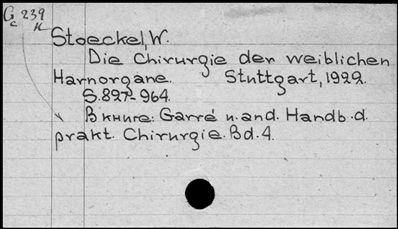 G 239
c
K
Stoeckel, W.
Die Chirurgie der weiblichen
Harnorgane. Stuttgart, 1922.
S. 827-964.
В книге: Garré u. and. Handb. d.
prakt. Chirurgie. Bd. 4.